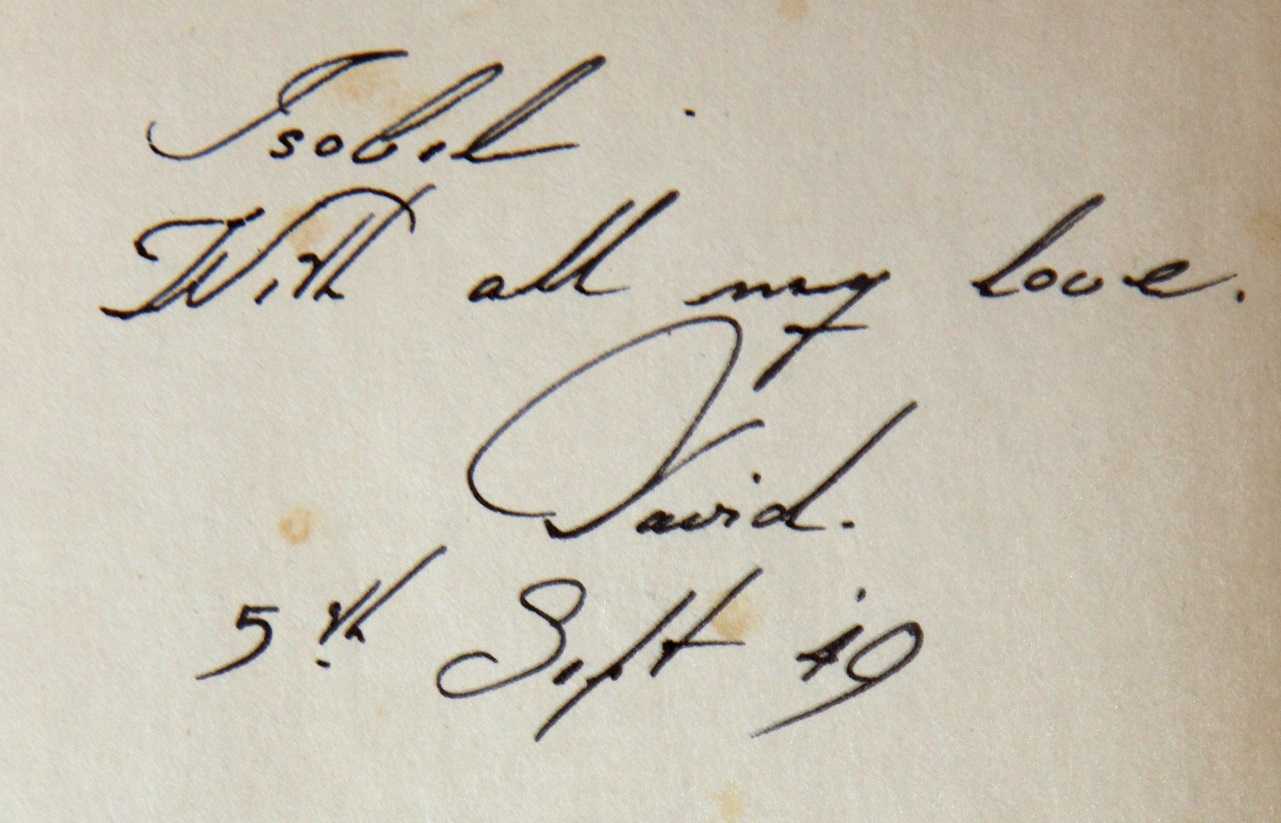 Isobel
With all my love.
David.
5th Sept '49